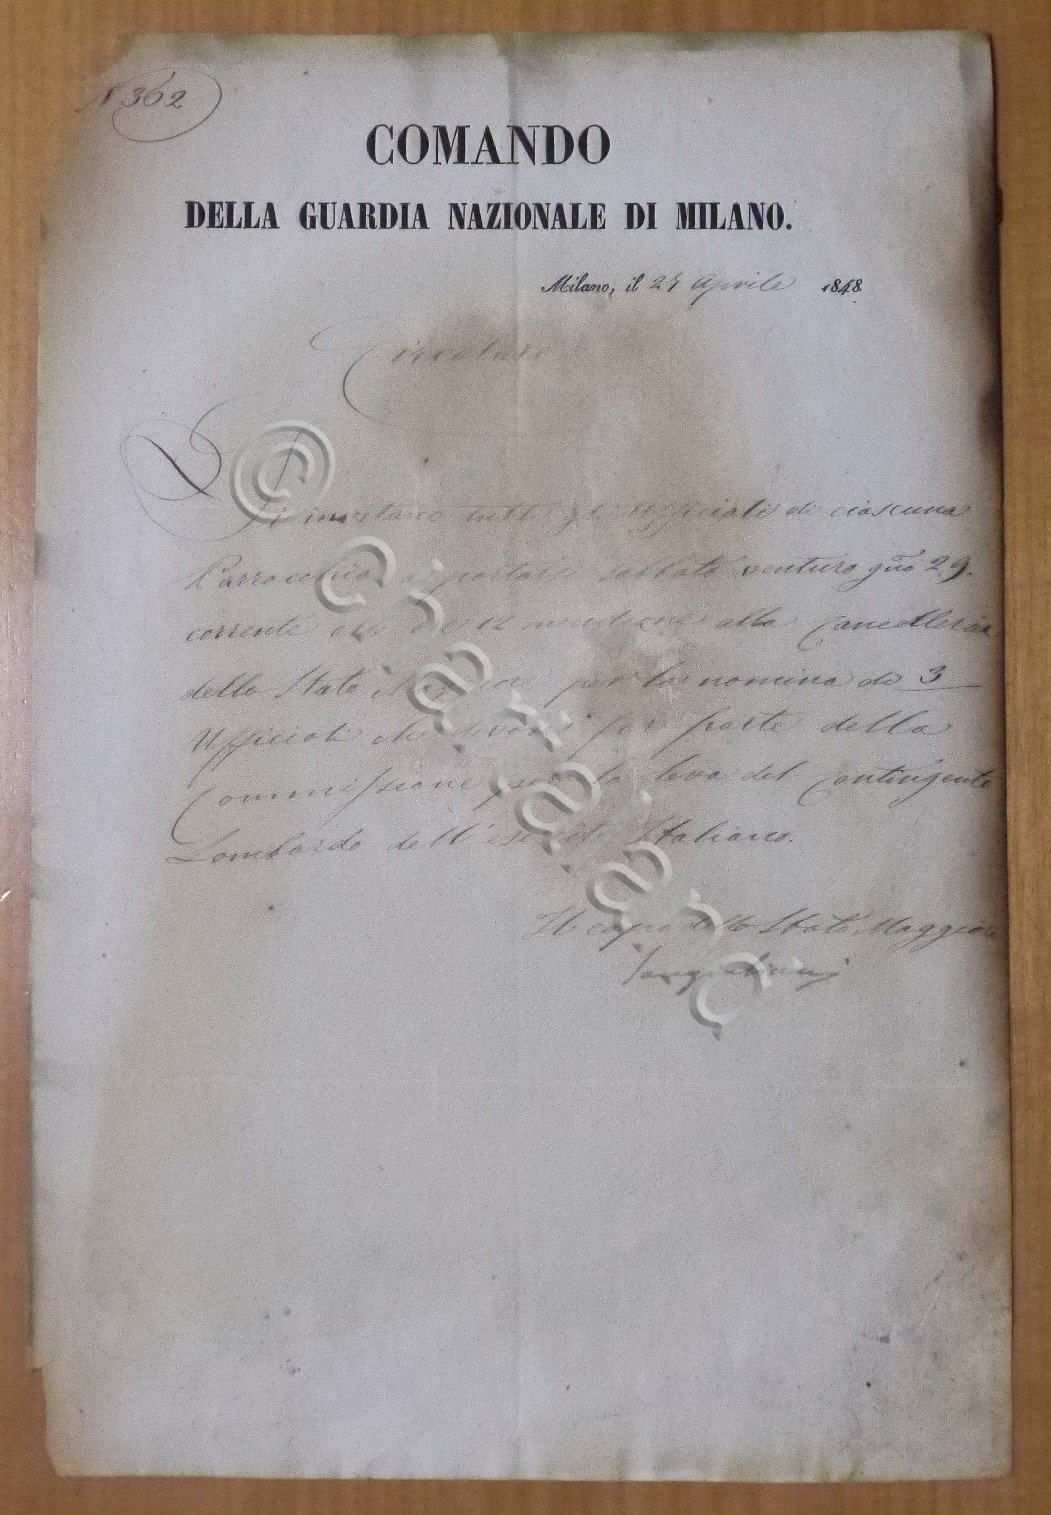 N. 362
COMANDO
DELLA GUARDIA NAZIONALE DI MILANO.
Milano, il 27 Aprile 1848
Circolare
Si invitano tutti gli Ufficiali di ciascuna
Parrocchia a portarsi sabbato venturo gno 29.
corrente ore 12 meridiane alla Cancelleria
dello Stato Maggiore per la nomina di 3
Ufficiali che devono far parte della
Commissione per la leva del Contingente
Lombardo dell'esercito Italiano.
Il capo dello Stato Maggiore
© Chartaland